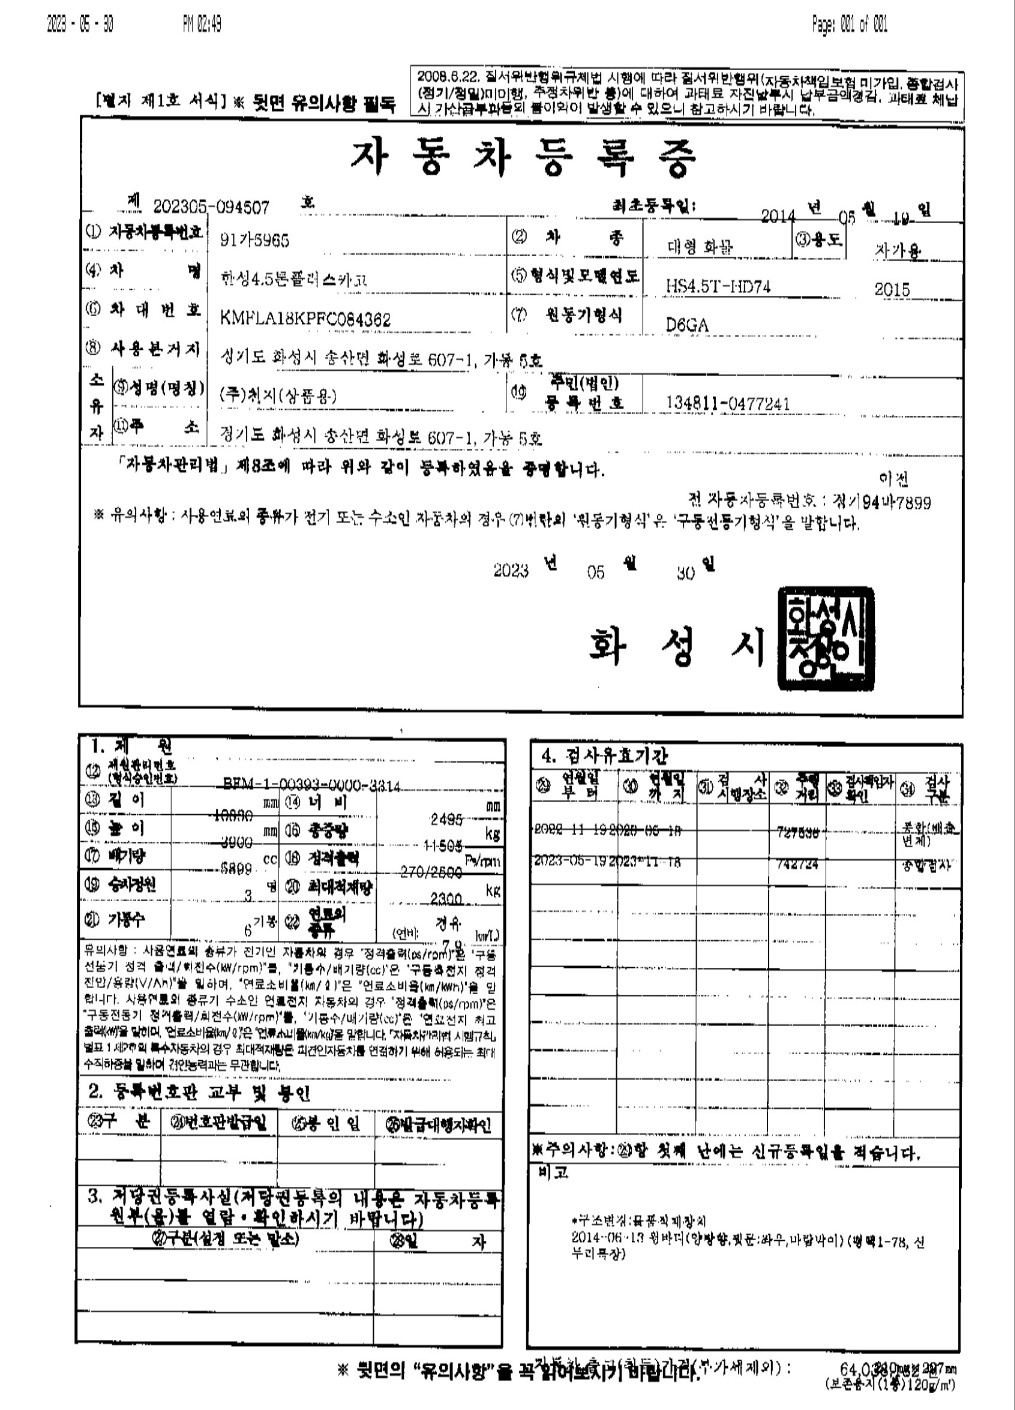 2023 - 05 - 30 PM 02:49 Page: 001 of 001
[별지 제1호 서식] ※ 뒷면 유의사항 필독
2008.6.22. 질서위반행위규제법 시행에 따라 질서위반행위(자동차책임보험 미가입, 종합검사
(정기/정밀)미이행, 주정차위반 등)에 대하여 과태료 자진납부시 납부금액경감, 과태료 체납
시 가산금부과등의 불이익이 발생할 수 있으니 참고하시기 바랍니다.
자동차등록증
제 202305-094507 호 최초등록일: 2014 년 05 월 19 일
① 자동차등록번호 91가5965 ② 차 종 대형 화물 ③용도 자가용
④ 차 명 한성4.5톤플러스카고 ⑤ 형식및모델연도 HS4.5T-HD74 2015
⑥ 차대번호 KMFLA18KPFC084362 ⑦ 원동기형식 D6GA
⑧ 사용본거지 경기도 화성시 송산면 화성로 607-1, 가동 5호
소유자 ⑨성명(명칭) (주)천지(상품용) ⑩ 주민(법인)등록번호 134811-0477241
⑪주 소 경기도 화성시 송산면 화성로 607-1, 가동 5호
「자동차관리법」제8조에 따라 위와 같이 등록하였음을 증명합니다.
이전
전 자동차등록번호 : 경기94마7899
※ 유의사항 : 사용연료의 종류가 전기 또는 수소인 자동차의 경우 (7)번란의 '원동기형식'은 '구동전동기형식'을 말합니다.
2023 년 05 월 30 일
화성시
화성시장인
1. 제 원
⑫ 제원관리번호(형식승인번호) BFM-1-00393-0000-3314
⑬ 길이 mm ⑭ 너비 2495 mm
⑮ 높이 3900 mm ⑯ 총중량 11505 kg
⑰ 배기량 5899 cc ⑱ 정격출력 270/2500 Ps/rpm
⑲ 승차정원 3 명 ⑳ 최대적재량 2300 kg
㉑ 기통수 6 기통 ㉒ 연료의 종류 경유 (연비: 7.9 km/L)
유의사항 : 사용연료의 종류가 전기인 자동차의 경우 "정격출력(ps/rpm)"은 "구동
전동기 정격 출력/회전수(kW/rpm)"를, "기통수/배기량(cc)"은 "구동축전지 정격
전압/용량(V/Ah)"을 말하며, "연료소비율(km/ℓ)"은 "연료소비율(km/kWh)"을 말
합니다. 사용연료의 종류가 수소인 연료전지 자동차의 경우 "정격출력(ps/rpm)"은
"구동전동기 정격출력/회전수(kW/rpm)"를, "기통수/배기량(cc)"은 "연료전지 최고
출력(kW)"을 말하며, "연료소비율(km/ℓ)"은 "연료소비율(km/kg)"을 말합니다. 「자동차관리법 시행규칙」
별표 1 제2호의 특수자동차의 경우 최대적재량은 피견인자동차를 연결하기 위해 허용되는 최대
수직하중을 말하며 견인능력과는 무관합니다.
2. 등록번호판 교부 및 봉인
㉓구 분 ㉔번호판발급일 ㉕봉인일 ㉖발급대행자확인
3. 저당권등록사실(저당권등록의 내용은 자동차등록
원부(을)를 열람ㆍ확인하시기 바랍니다)
㉗구분(설정 또는 말소) ㉘일 자
4. 검사유효기간
㉙ 연월일부터 ㉚ 연월일까지 ㉛ 검사시행장소 ㉜ 주행거리 ㉝ 검사책임자확인 ㉞ 검사구분
2022-11-19 2023-05-18 종합(배출면제)
2023-05-19 2023-11-18 742724 종합검사
※주의사항:㉙항 첫째 난에는 신규등록일을 적습니다.
비고
*구조변경:물품적재장치
2014-06-13 윙바디(양방향,뒷문:좌우,바람막이) (평택1-78, 신
우리특장)
※ 뒷면의 "유의사항"을 꼭 읽어보시기 바랍니다.
자동차 출고(취득)가격(부가세제외) :
(보존용지(1종)120g/㎡)